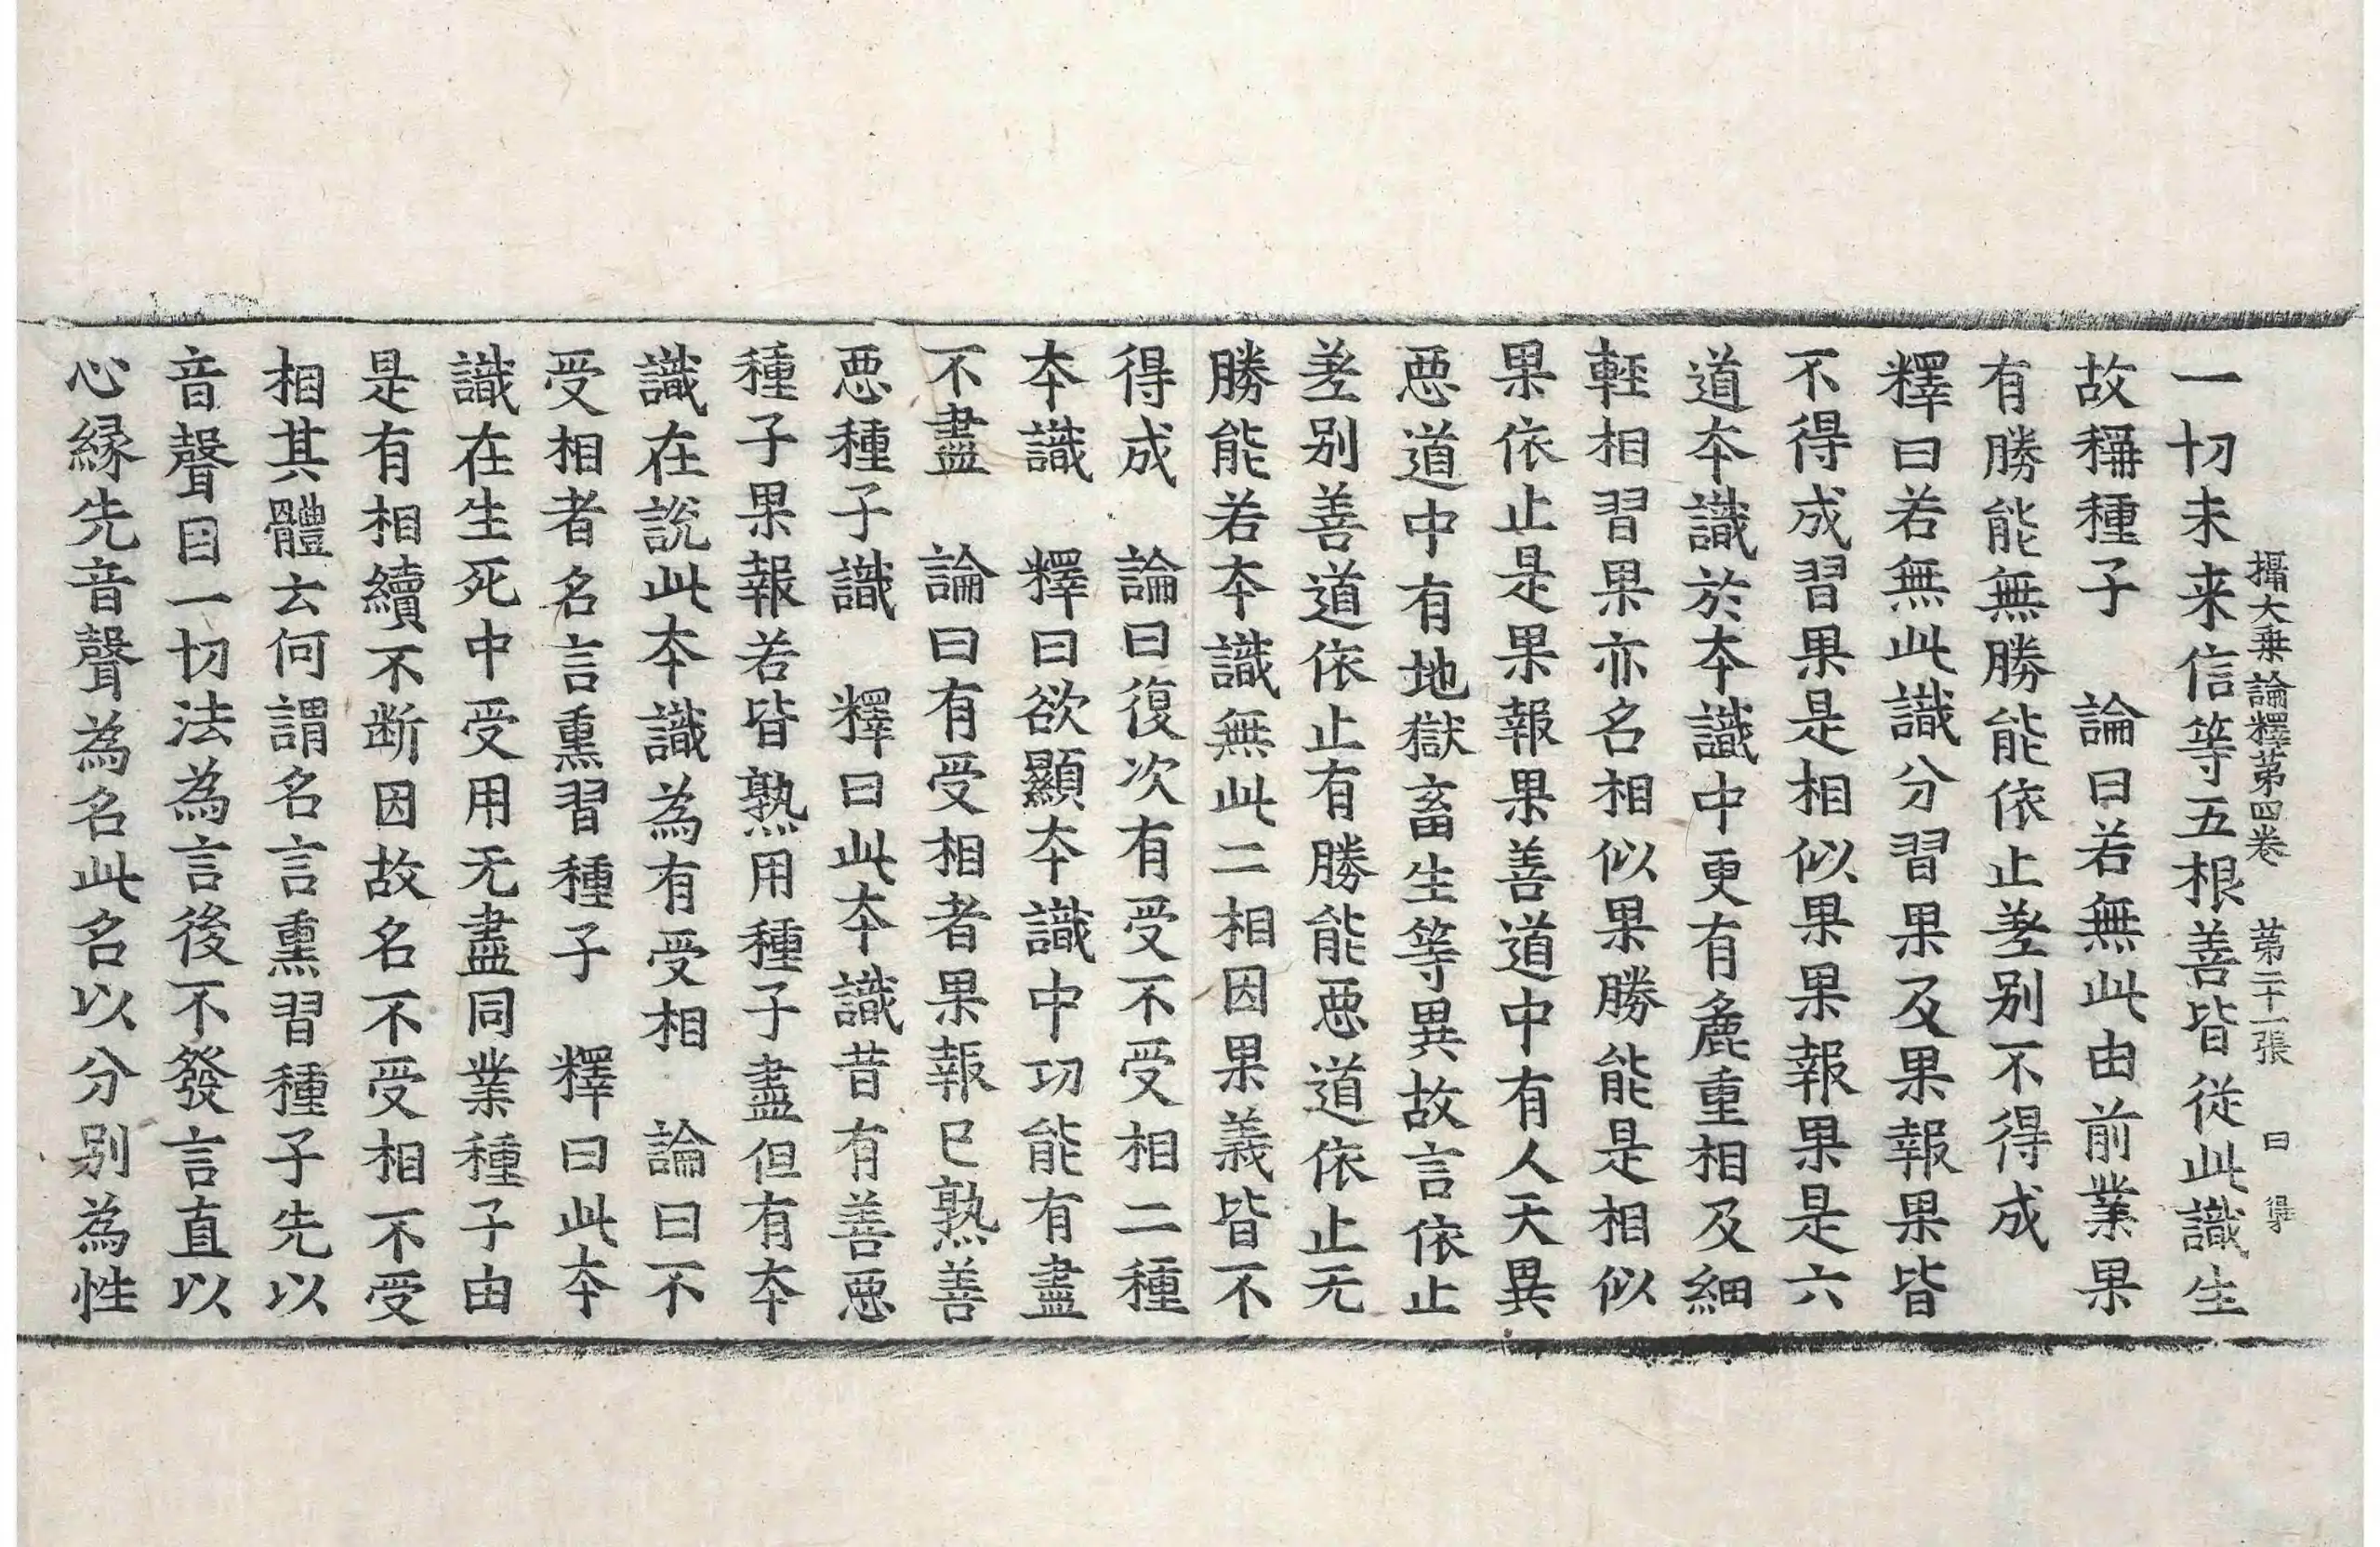 攝大乗論釋第四卷　第二十一張　曰　得
一切未来信等五根善皆從此識生
故稱種子　論曰若無此由前業果
有勝能無勝能依止差别不得成
釋曰若無此識分習果及果報果皆
不得成習果是相似果果報果是六
道夲識於夲識中更有麁重相及細
輊相習果亦名相似果勝能是相似
果依止是果報果善道中有人天異
惡道中有地獄畜生等異故言依止
差别善道依止有勝能惡道依止无
勝能若夲識無此二相因果義皆不
得成　論曰復次有受不受相二種
夲識　釋曰欲顯夲識中功能有盡
不盡　論曰有受相者果報已熟善
惡種子識　釋曰此夲識昔有善惡
種子果報若皆熟用種子盡但有夲
識在說此夲識為有受相　論曰不
受相者名言熏習種子　釋曰此夲
識在生死中受用无盡同業種子由
是有相續不断因故名不受相不受
相其體云何謂名言熏習種子先以
音聲目一切法為言後不發言直以
心縁先音聲為名此名以分别為性